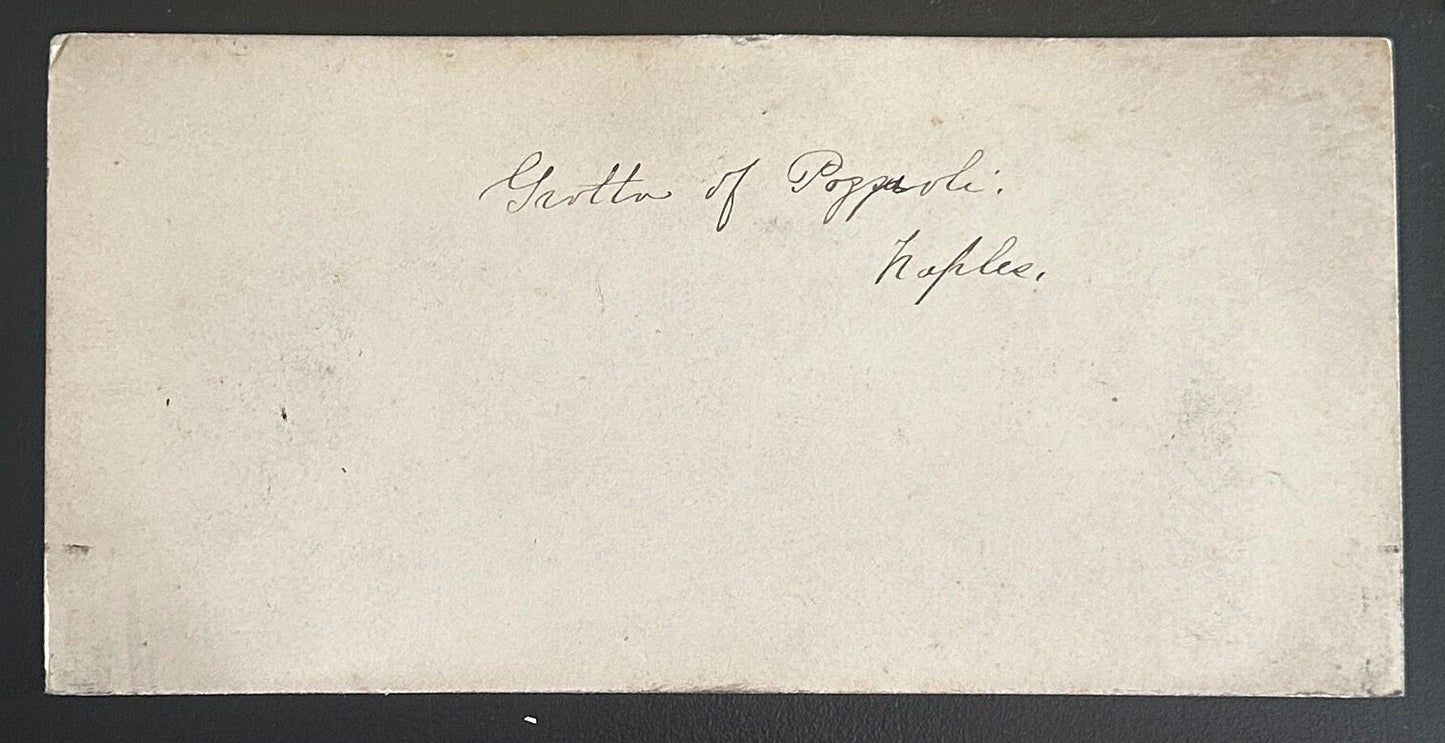 Grotto of Pozzuoli.
Naples.